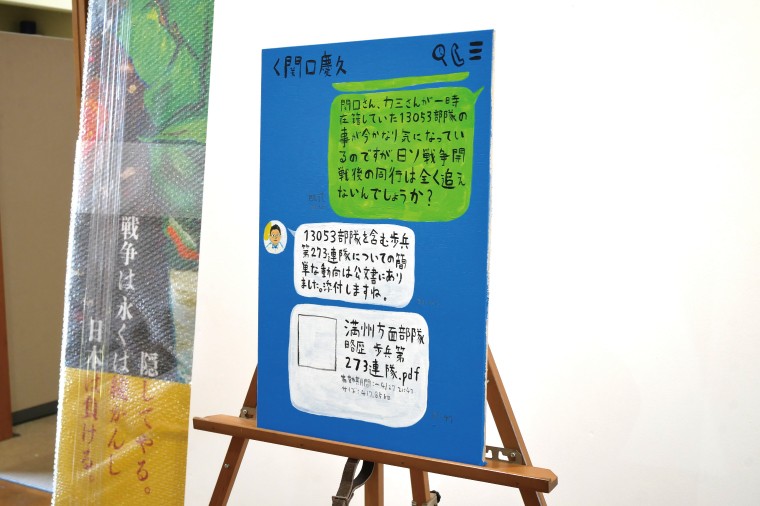 く関口慶久
関口さん、カミさんが一時
在籍していた13053部隊の
事が今かなり気になってい
るのですが、日ソ戦争開
戦後の同行は全く追え
ないんでしょうか？
13053部隊を含む歩兵
第273連隊についての簡
単な動向は公文書にあり
ました。添付しますね。
満州方面部隊
略歴 歩兵第
273連隊.pdf
隠してやる。
戦争は永くは
日本は負ける。